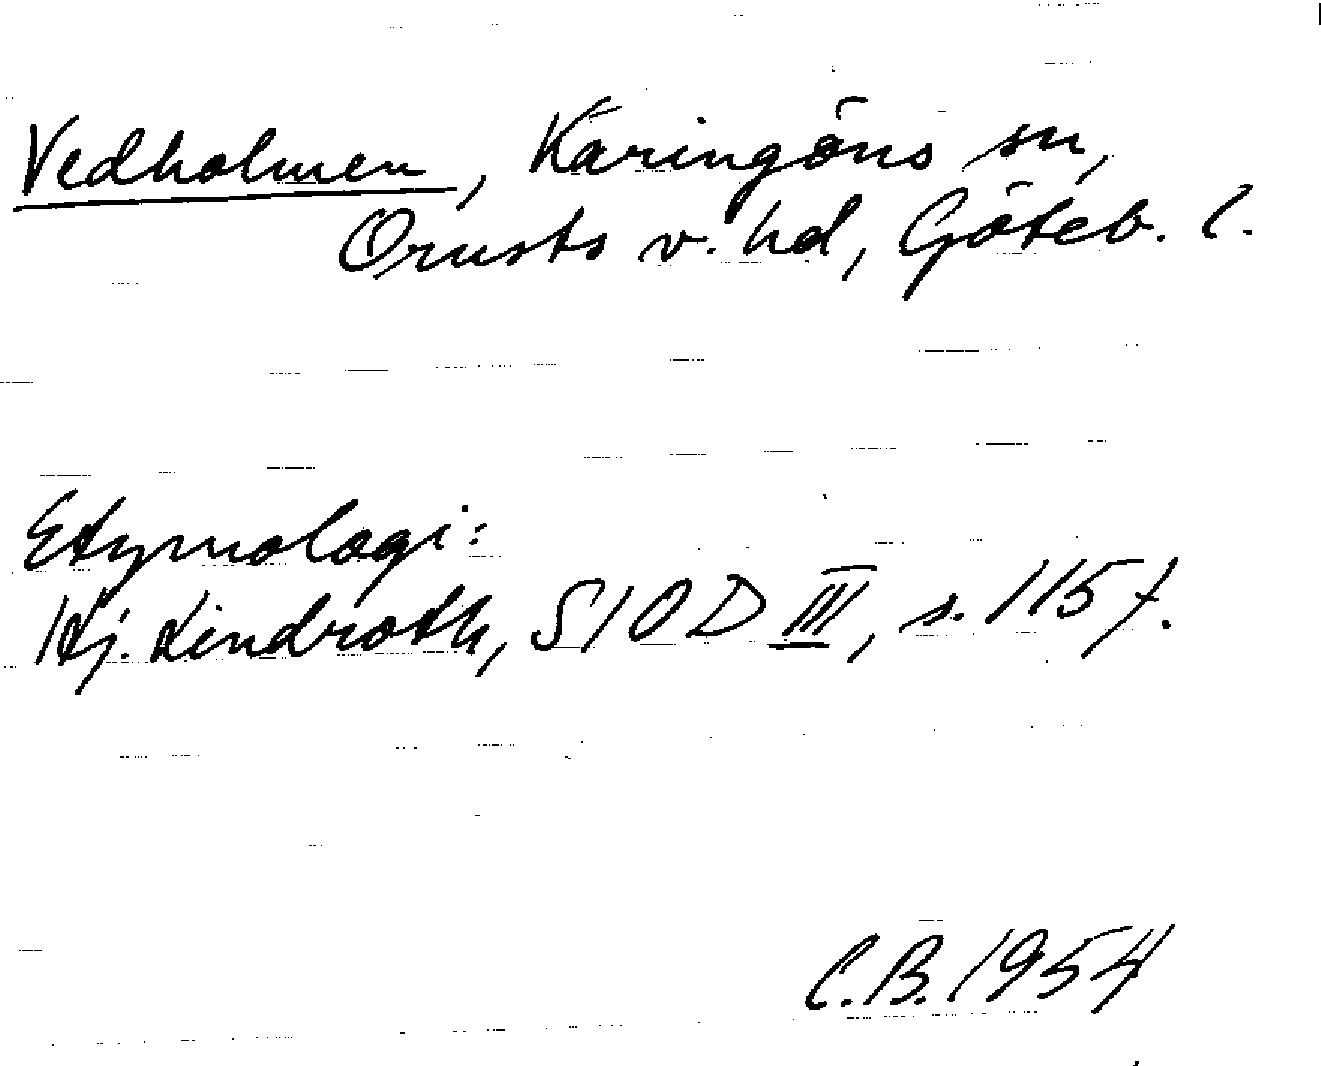 Vedholmen, Käringöns sn,
Orusts v. hd, Göteb. l.
Etymologi:
Hj. Lindroth, SIOD III, s. 115 f.
C.B. 1954